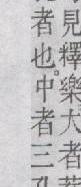 見釋樂大者
者也。中者三孔